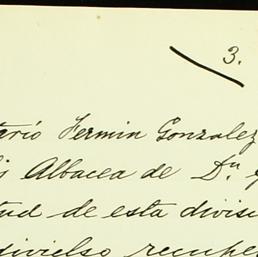 3.
tario Fermin Gonzalez
Albacea de Dn.
tud de esta divisi
divielso recupe